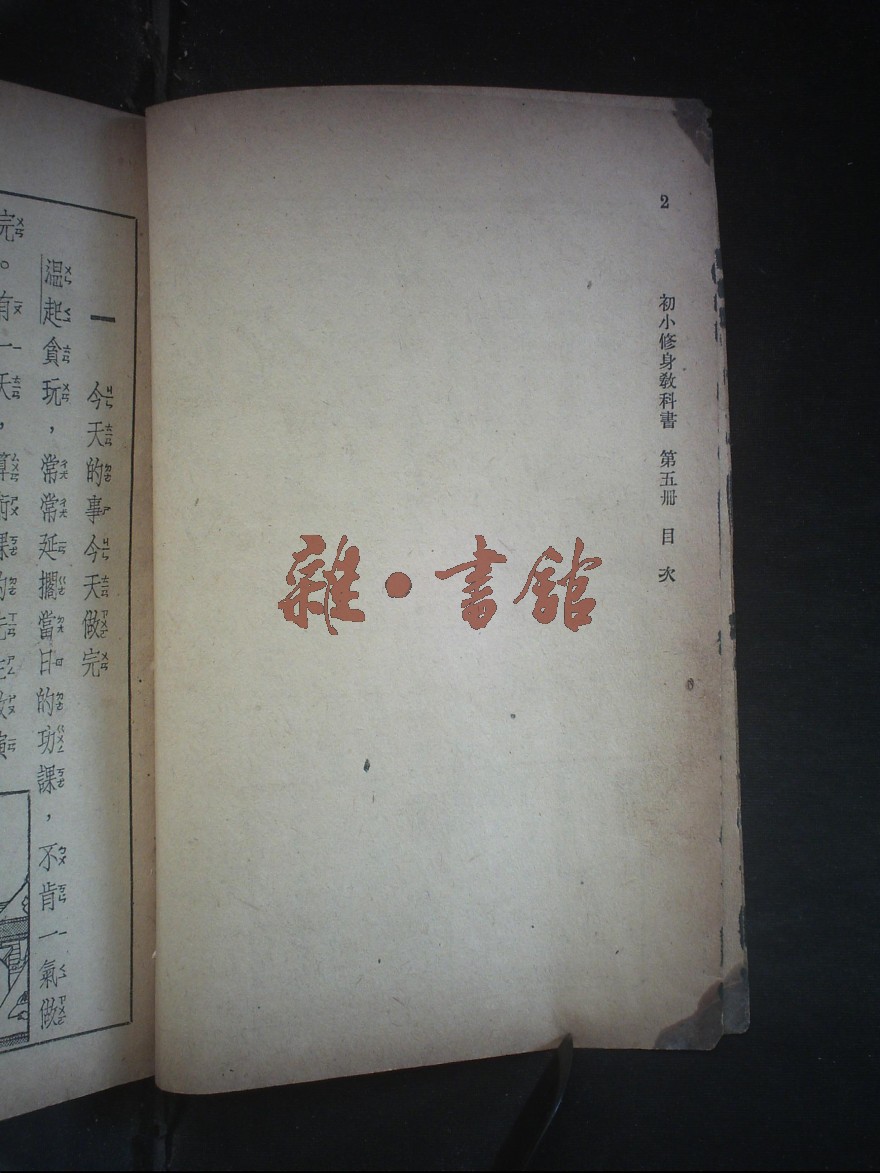 2
初小修身教科書 第五册 目次
雜·書館
一 今天的事今天做完
温起貪玩，常常延擱當日的功課，不肯一氣做
完。有一天，算術課的先生教演